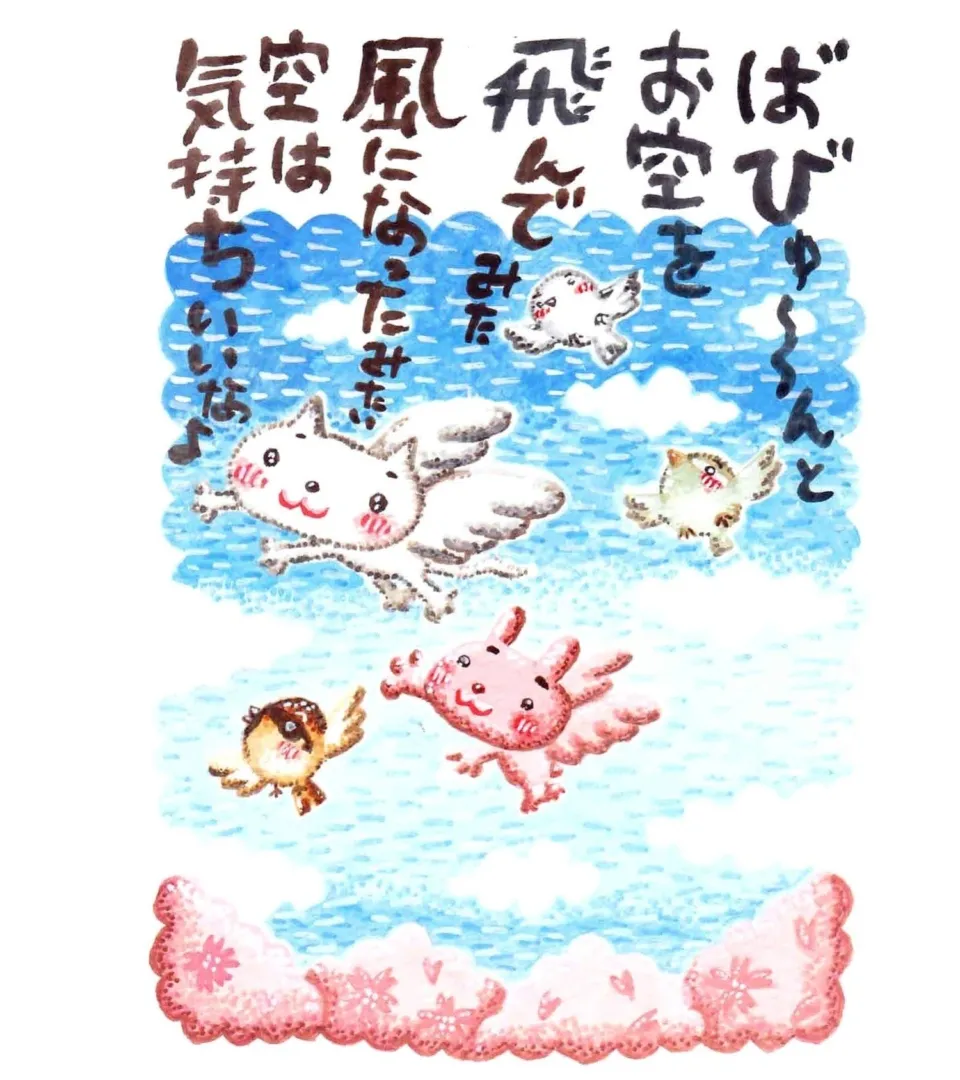 ばびゅ〜〜んと
お空を
飛んでみた
風になったみたい
空は
気持ちいいな♪